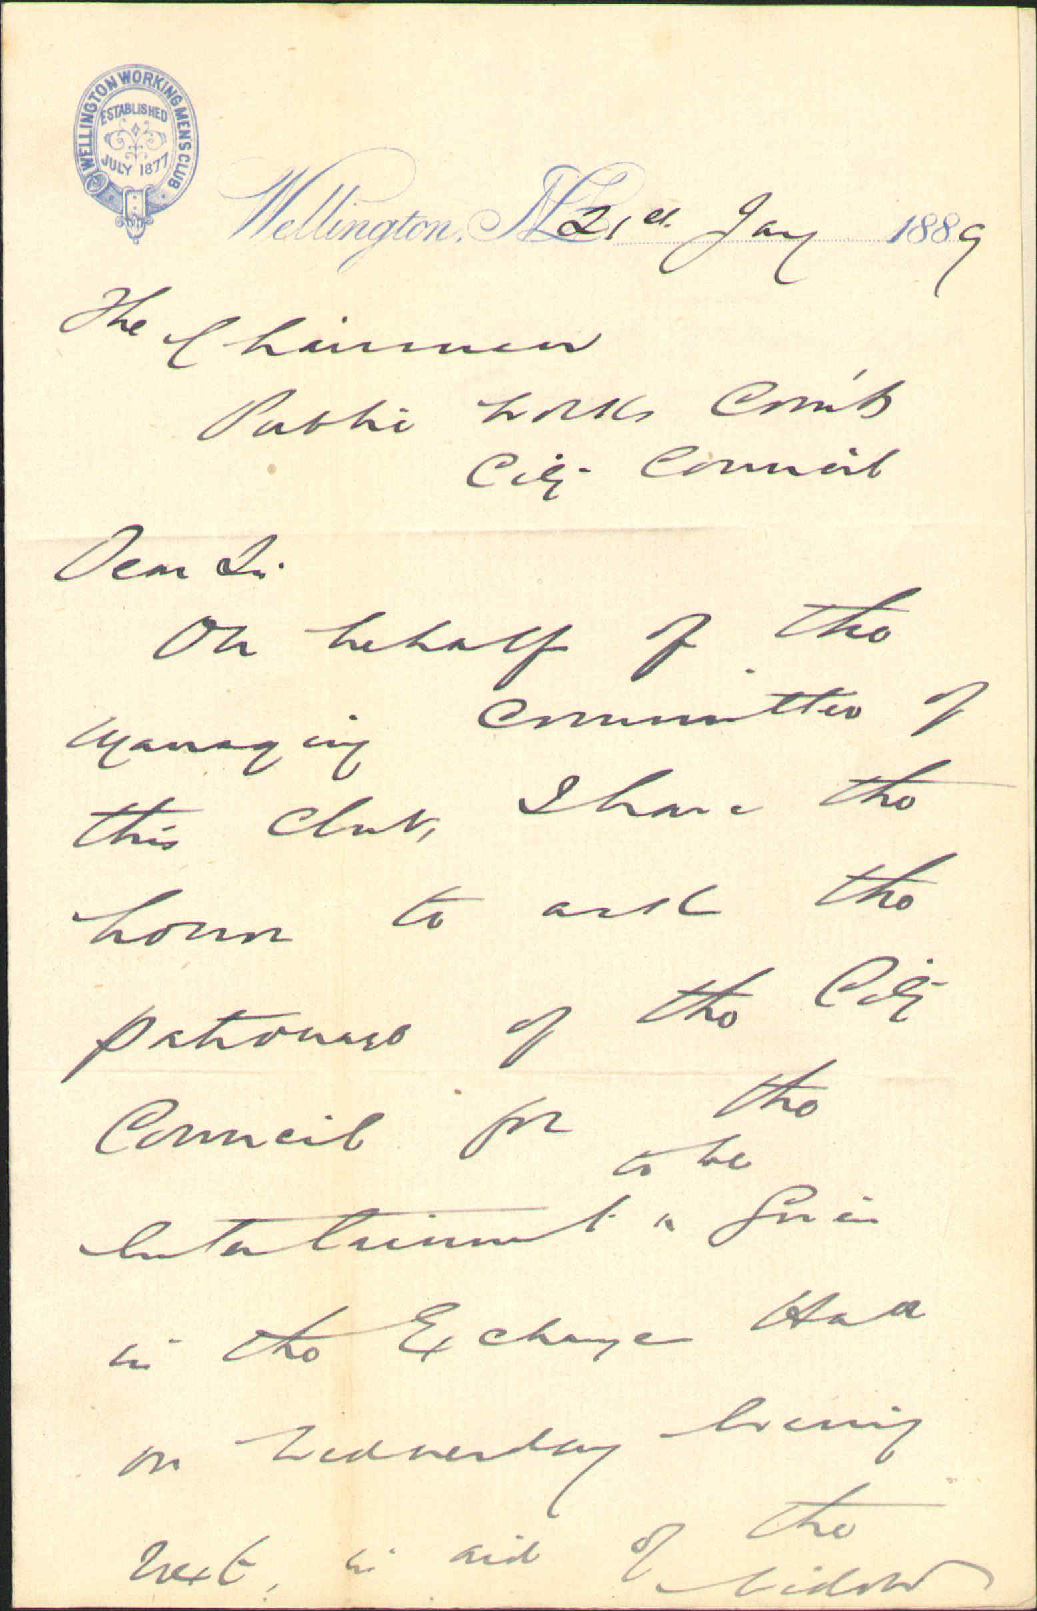 WELLINGTON WORKING MENS CLUB
ESTABLISHED
JULY 1877
Wellington, N.Z. 21st Jany 1889
The Chairman
Public Works Com'te
City Council
Dear Sir
On behalf of the
Managing Committee of
this Club, I have the
honor to ask the
patronage of the City
Council for the
to be
Entertainment ^ given
in the Exchange Hall
on Wednesday Evening
next, in aid of the
widow